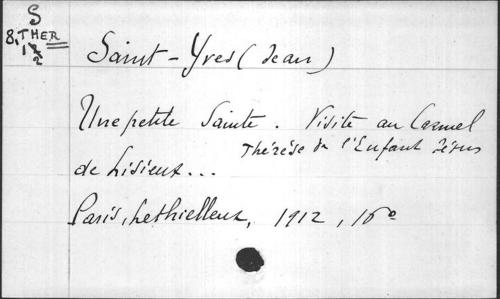 S
8, THER
1 2
Saint-Yves (Jean)
Une petite Sainte. Visite au Carmel
Thérèse de l'Enfant Jésus
de Lisieux...
Paris, Lethielleux, 1912, 16°